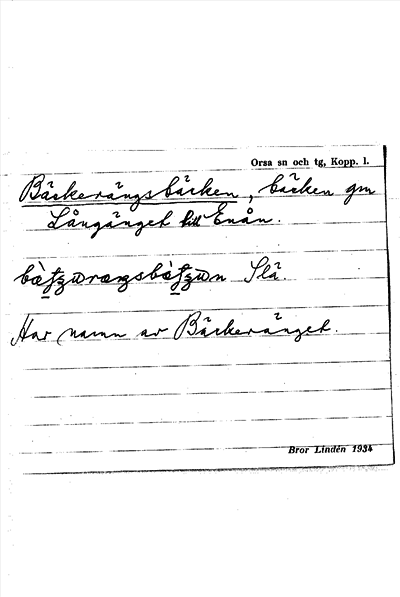 Orsa sn och tg, Kopp. l.
Bäckerängsbäcken, bäcken gm
Långänget till Enån.
Slä.
Har namn av Bäckeränget.
Bror Lindén 1934